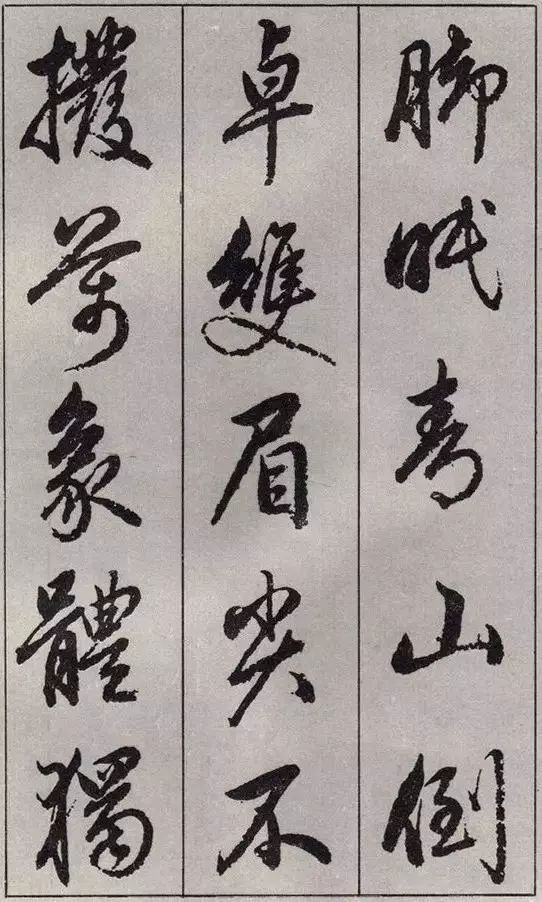 脚眠青山倒
卓雙眉尖不
撥萬象體獨